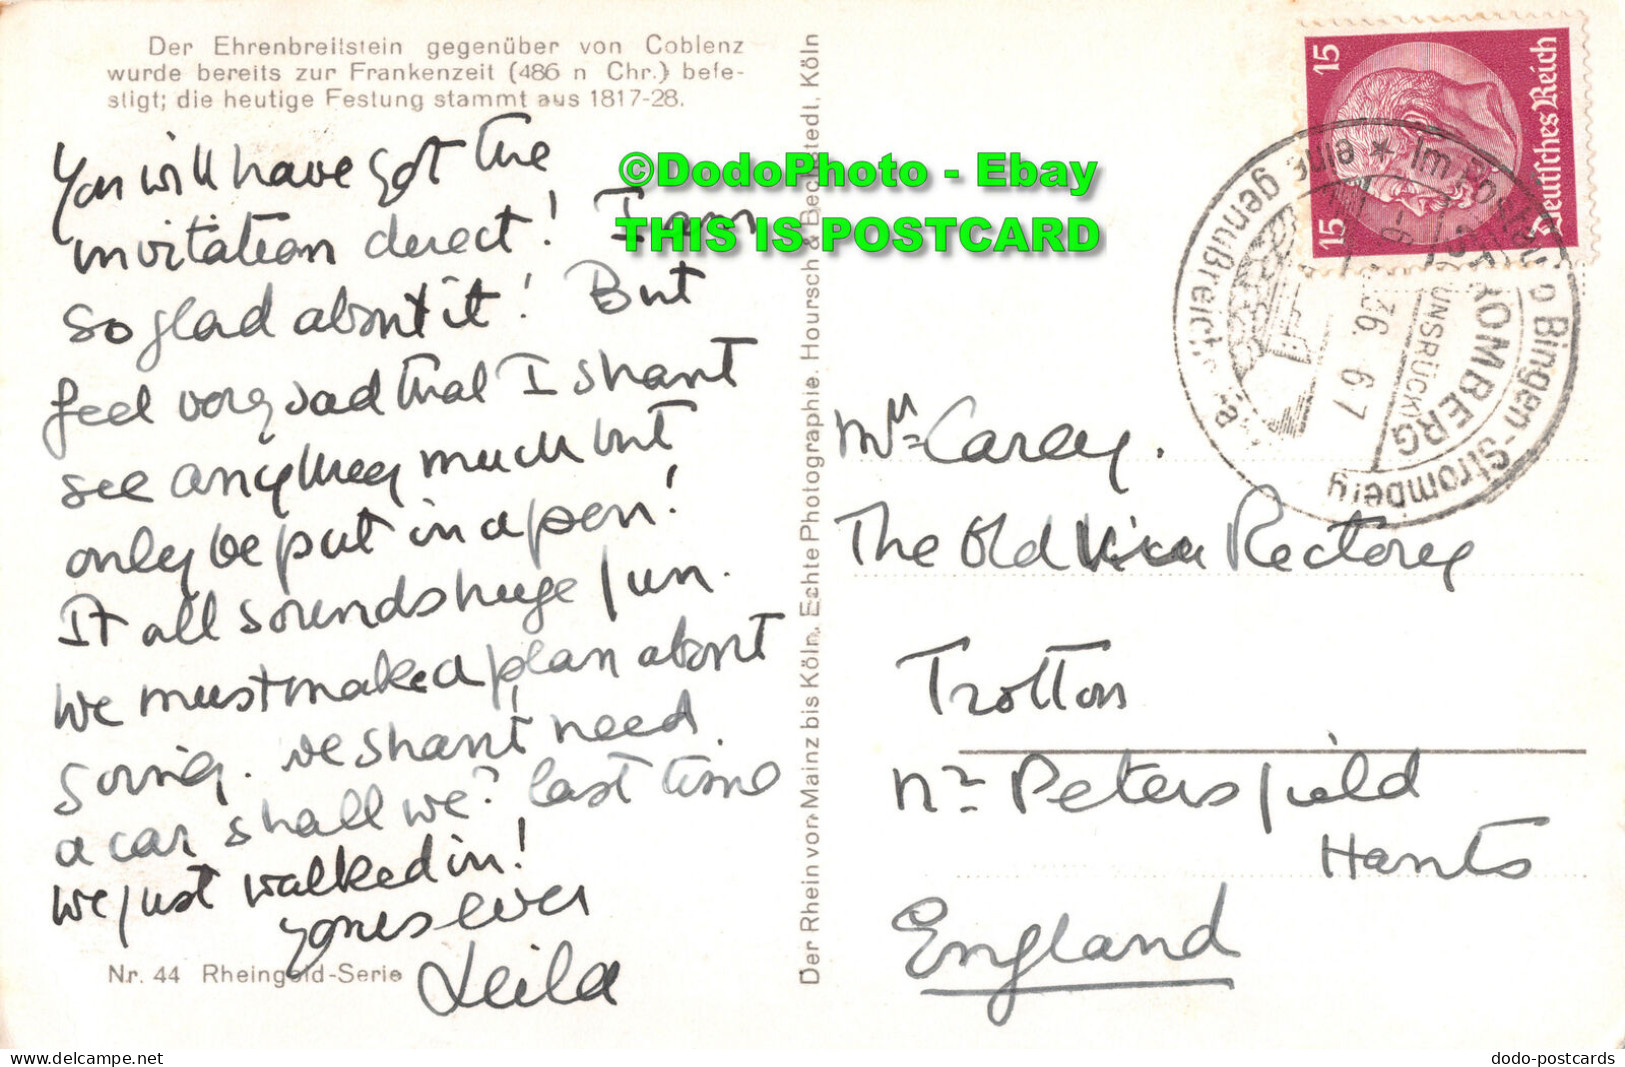 Der Ehrenbreitstein gegenüber von Coblenz
wurde bereits zur Frankenzeit (486 n Chr.) befe-
stigt; die heutige Festung stammt aus 1817-28.
You will have got the
invitation direct! I am
so glad about it! But
feel very sad that I shant
see anything much but
only be put in a pen!
It all sounds huge fun.
We must make a plan about
going. We shant need
a car shall we? last time
we just walked in!
yours ever
Leila
Nr. 44 Rheingold-Serie
Der Rhein von Mainz bis Köln. Echte Photographie. Hoursch & Bechstedt, Köln
©DodoPhoto - Ebay
THIS IS POSTCARD
15 15
Deutsches Reich
Im Postauto Bingen-Stromberg
eine genußreiche
STROMBERG
(HUNSRÜCK)
36. 6-7
Mrs Carey.
The Old Rectory
Trotton
Nr Petersfield
Hants
England
www.delcampe.net
dodo-postcards